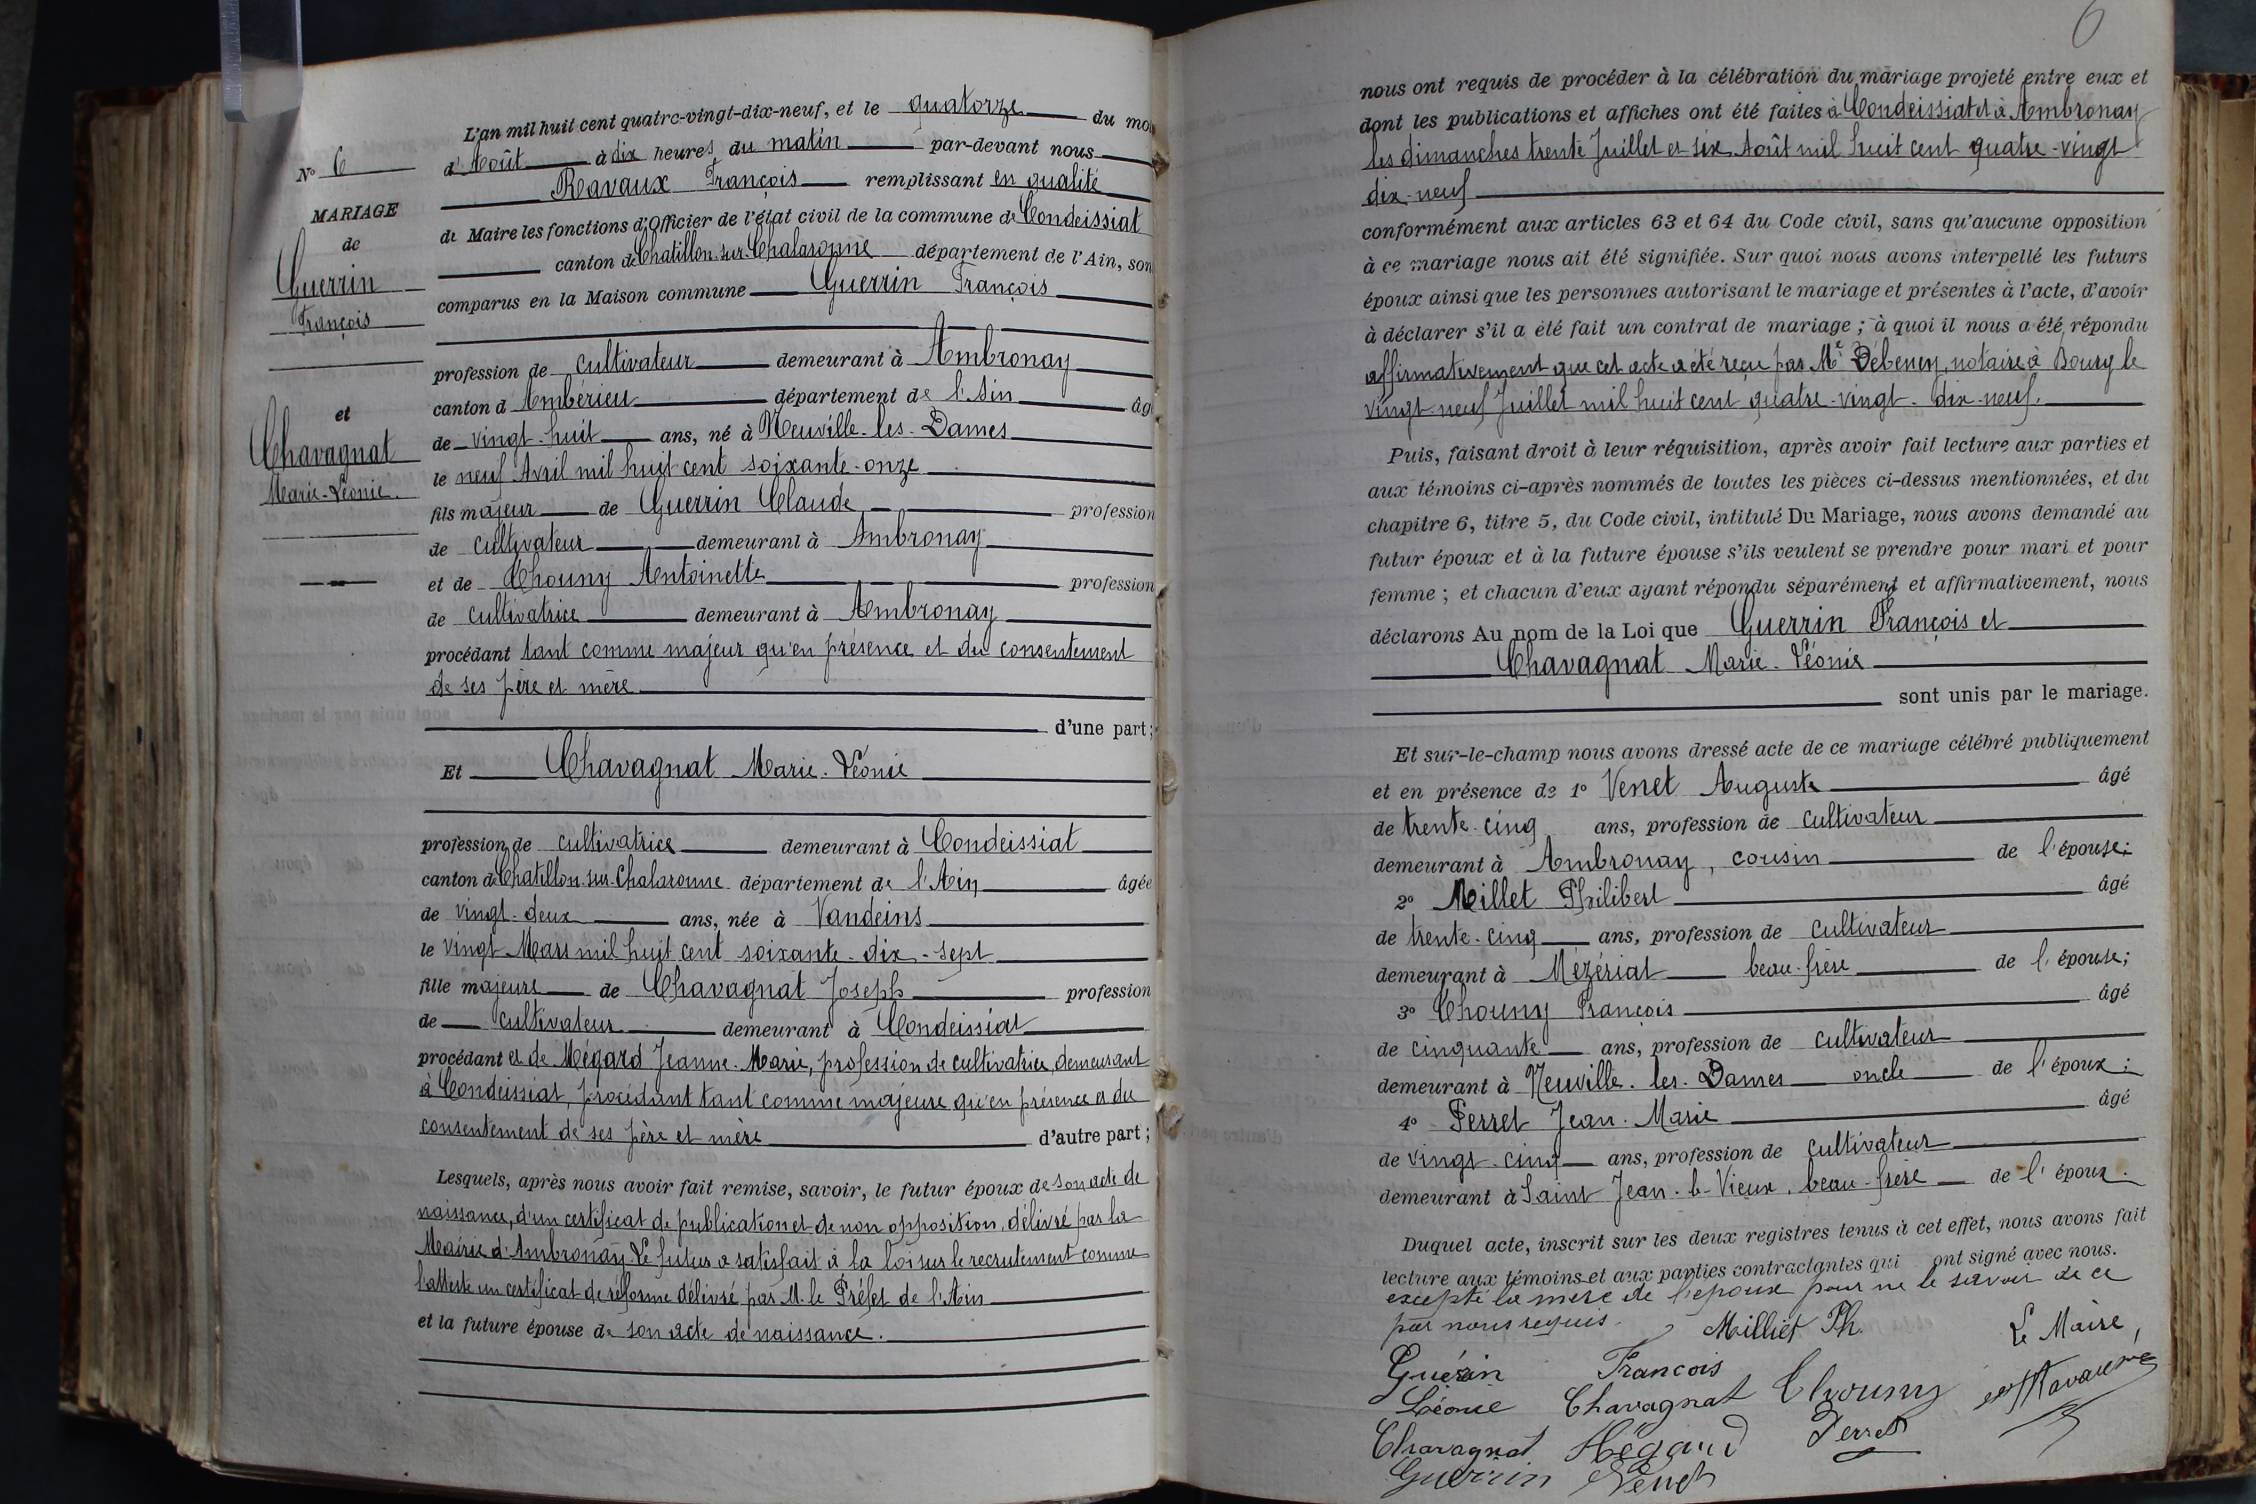 N° 6
MARIAGE
de
Guerrin
François
et
Chavagnat
Marie-Léonie.
L'an mil huit cent quatre-vingt-dix-neuf, et le quatorze du mo
d'Août à dix heures du matin par-devant nous
Ravaux François remplissant en qualité
de Maire les fonctions d'Officier de l'état civil de la commune de Condeissiat
canton de Chatillon-sur-Chalaronne département de l'Ain, son
comparus en la Maison commune Guerrin François
profession de cultivateur demeurant à Ambronay
canton d'Ambérieu département de l'Ain âg
de vingt-huit ans, né à Neuville-les-Dames
le neuf Avril mil huit cent soixante-onze
fils majeur de Guerrin Claude profession
de cultivateur demeurant à Ambronay
et de Chouny Antoinette profession
de cultivatrice demeurant à Ambronay
procédant tant comme majeur qu'en présence et du consentement
de ses père et mère
d'une part;
Et Chavagnat Marie-Léonie
profession de cultivatrice demeurant à Condeissiat
canton de Chatillon-sur-Chalaronne département de l'Ain âgée
de vingt-deux ans, née à Vandeins
le vingt Mars mil huit cent soixante-dix-sept
fille majeure de Chavagnat Joseph profession
de cultivateur demeurant à Condeissiat
procédant et de Mégard Jeanne-Marie, profession de cultivatrice, demeurant
à Condeissiat, procédant tant comme majeure qu'en présence et du
consentement de ses père et mère d'autre part;
Lesquels, après nous avoir fait remise, savoir, le futur époux de son acte de
naissance, d'un certificat de publication et de non opposition, délivré par la
Mairie d'Ambronay. Le futur a satisfait à la loi sur le recrutement comme
l'atteste un certificat de réforme délivré par M. le Préfet de l'Ain
et la future épouse de son acte de naissance.
6
nous ont requis de procéder à la célébration du mariage projeté entre eux et
dont les publications et affiches ont été faites à Condeissiat et à Ambronay
les dimanches trente Juillet et six Août mil huit cent quatre-vingt
dix-neuf
conformément aux articles 63 et 64 du Code civil, sans qu'aucune opposition
à ce mariage nous ait été signifiée. Sur quoi nous avons interpellé les futurs
époux ainsi que les personnes autorisant le mariage et présentes à l'acte, d'avoir
à déclarer s'il a été fait un contrat de mariage; à quoi il nous a été répondu
affirmativement que cet acte a été reçu par Me Débeney, notaire à Bourg le
vingt-neuf Juillet mil huit cent quatre-vingt-dix-neuf.
Puis, faisant droit à leur réquisition, après avoir fait lecture aux parties et
aux témoins ci-après nommés de toutes les pièces ci-dessus mentionnées, et du
chapitre 6, titre 5, du Code civil, intitulé Du Mariage, nous avons demandé au
futur époux et à la future épouse s'ils veulent se prendre pour mari et pour
femme; et chacun d'eux ayant répondu séparément et affirmativement, nous
déclarons Au nom de la Loi que Guerrin François et
Chavagnat Marie-Léonie
sont unis par le mariage.
Et sur-le-champ nous avons dressé acte de ce mariage célébré publiquement
et en présence de 1° Venet Auguste âgé
de trente-cinq ans, profession de cultivateur
demeurant à Ambronay, cousin de l'épouse;
2° Millet Philibert âgé
de trente-cinq ans, profession de cultivateur
demeurant à Mézériat beau-frère de l'épouse;
3° Chouny François âgé
de cinquante ans, profession de cultivateur
demeurant à Neuville-les-Dames oncle de l'époux;
4° Perret Jean-Marie âgé
de vingt-cinq ans, profession de cultivateur
demeurant à Saint Jean-le-Vieux, beau-frère de l'époux.
Duquel acte, inscrit sur les deux registres tenus à cet effet, nous avons fait
lecture aux témoins et aux parties contractantes qui ont signé avec nous.
excepté la mère de l'époux pour ne le savoir de ce
par nous requis.
Milliet Ph. Le Maire,
Guérin François
Léonie Chavagnat Chouny Ravaux
Chavagnat Mégard Perret
Guerrin Venet